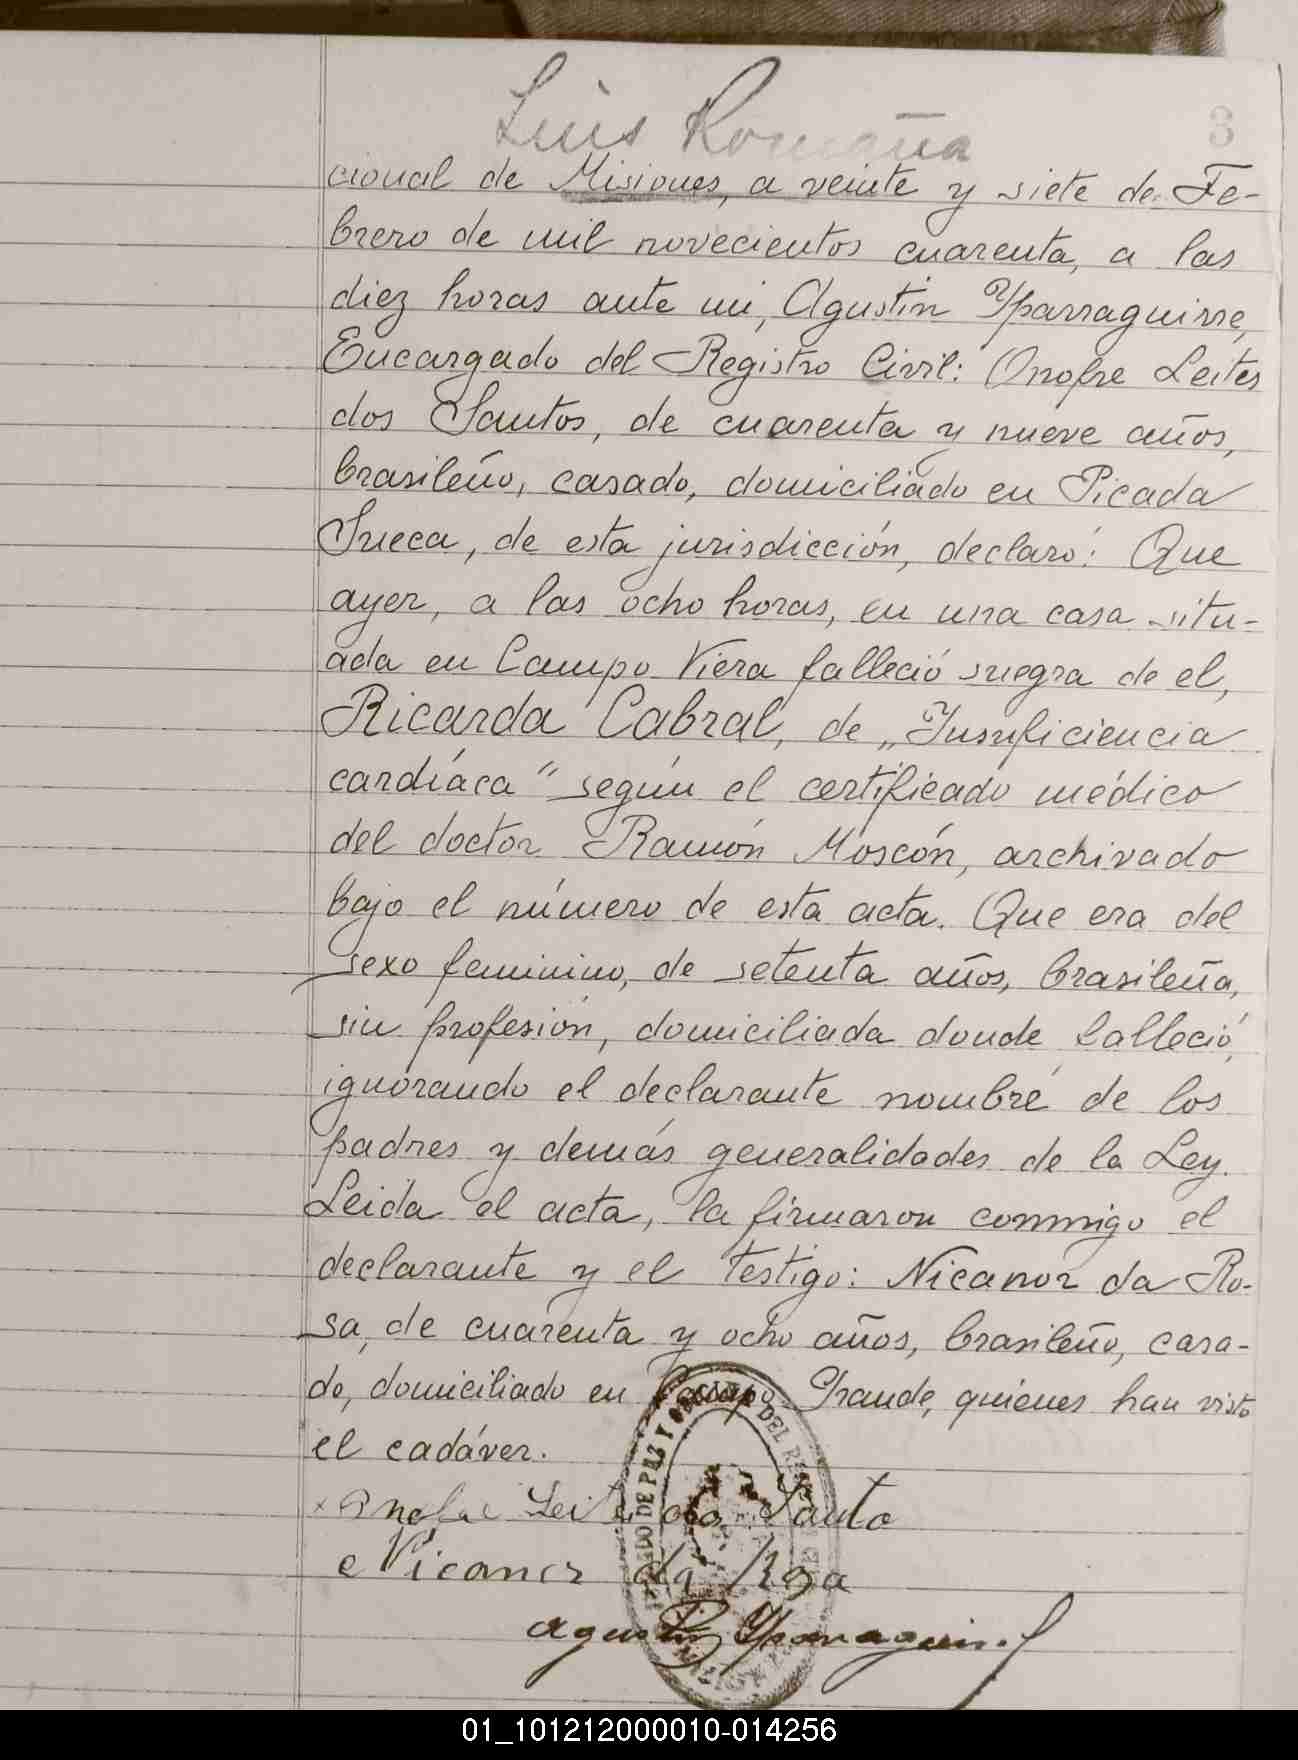 Luis Romaña
3
cional de Misiones, a veinte y siete de Fe-
brero de mil novecientos cuarenta, a las
diez horas ante mi, Agustin Yparraguirre,
Encargado del Registro Civil: Onofre Leites
dos Santos, de cuarenta y nueve años,
brasileño, casado, domiciliado en Picada
Sueca, de esta jurisdicción, declaró: Que
ayer, a las ocho horas, en una casa situ-
ada en Campo Viera falleció suegra de el,
Ricarda Cabral, de „Insuficiencia
cardíaca" según el certificado médico
del doctor Ramón Moscón, archivado
bajo el número de esta acta. Que era del
sexo feminino, de setenta años, brasileña,
sin profesión, domiciliada donde falleció,
ignorando el declarante nombre de los
padres y demás generalidades de la Ley.
Leida el acta, la firmaron conmigo el
declarante y el testigo: Nicanor da Ro-
sa, de cuarenta y ocho años, brasileño, casa-
do, domiciliado en Campo Grande, quiénes han visto
el cadáver.
x Onofre Leite dos Santo
Nicanor da Rosa
Agustin Yparraguirre
DE PAZ Y DEL
01_101212000010-014256